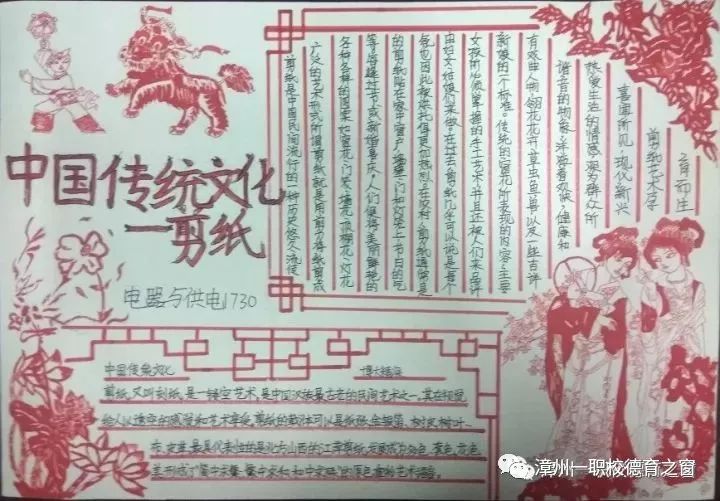 中国传统文化
—剪纸
电器与供电1730
剪纸是中国民间流行的一种历史悠久流传
广泛的艺术形式所谓剪纸就是用剪刀将纸剪成
各种各样的图案如窗花、门笺、墙花、顶棚花、灯花
等。每逢过节或新婚喜庆，人们便将美丽鲜艳的
的剪纸贴在家中窗户、墙壁、门和灯笼上，节日的气
氛也因此被烘托得更加热烈。在农村，剪纸通常是
由妇女、姑娘们来做。在过去，剪纸几乎可以说是每个
女孩所必须掌握的手工艺术，并且还被人们来品评
新娘的一个标准。传统的窗花所表现的内容主要
有戏曲人物，花卉，草虫鱼兽以及一些吉祥
谐音的物象，洋溢着欢快，健康和
热爱生活的情感，深为群众所
喜闻乐见 现代新兴
剪纸艺术孕
育而生
中国传统文化 博大精深
剪纸，又叫刻纸，是一镂空艺术，是中国汉族最古老的民间艺术之一，其在视觉
给人以透空的感觉和艺术享受，剪纸的载体可以是纸张、金银箔、树皮、树叶、
布、皮革，最具代表性的是北方山西的
漳州一职校德育之窗